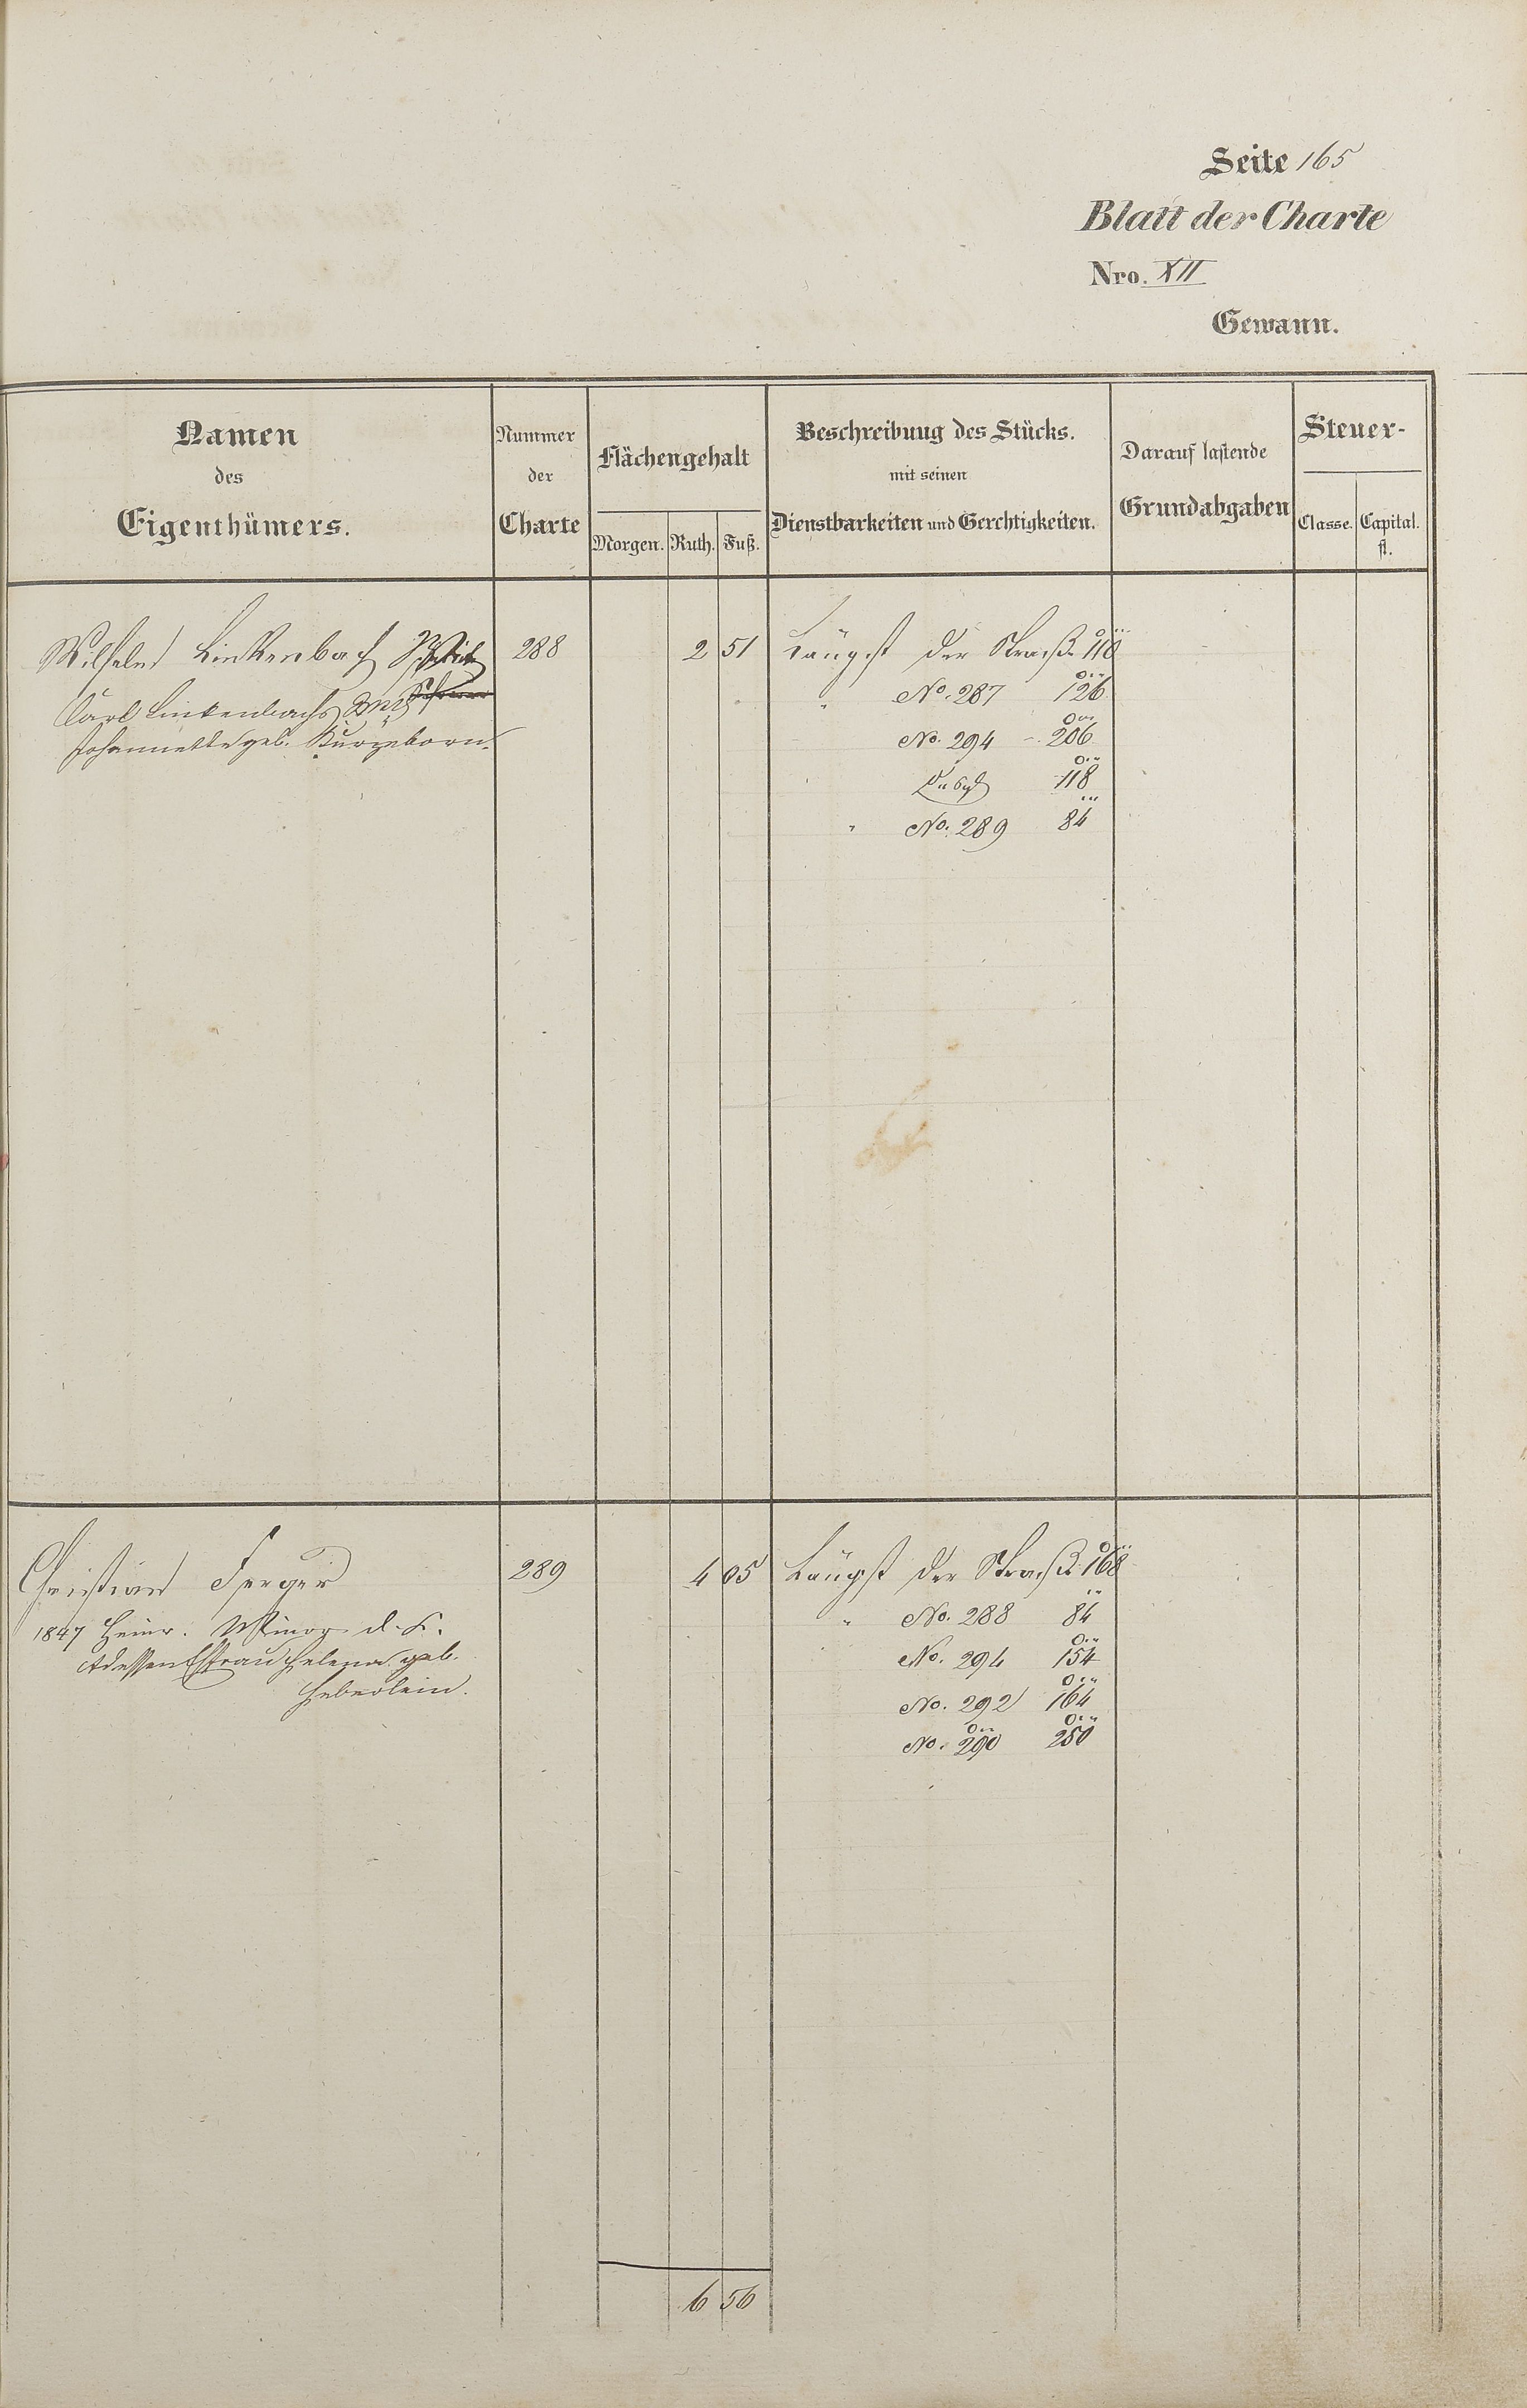 Seite 165
Blatt der Charte
Nro. XII
Gewann.
Namen des Eigenthümers.
Nummer der Charte
Flächengehalt
Morgen. Ruth. Fuß.
Beschreibung des Stücks. mit seinen Dienstbarkeiten und Gerechtigkeiten.
Darauf lastende Grundabgaben
Steuer-
Classe. Capital. fl.
Wilhelm Linkenbach 288 2 51 Längst der Straße 118
Carl Linkenbachs " No. 287 126
Johannette geb. Kurzeborn. No. 294 206
118
" No. 289 84
Christian Ferger 289 4 05 Längst der Straße 168
1847 Heinr. Minor d. " No. 288 84
dessen Ehfrau Helena geb. No. 294 154
Heberlein. No. 292 164
No. 290 250
6 56